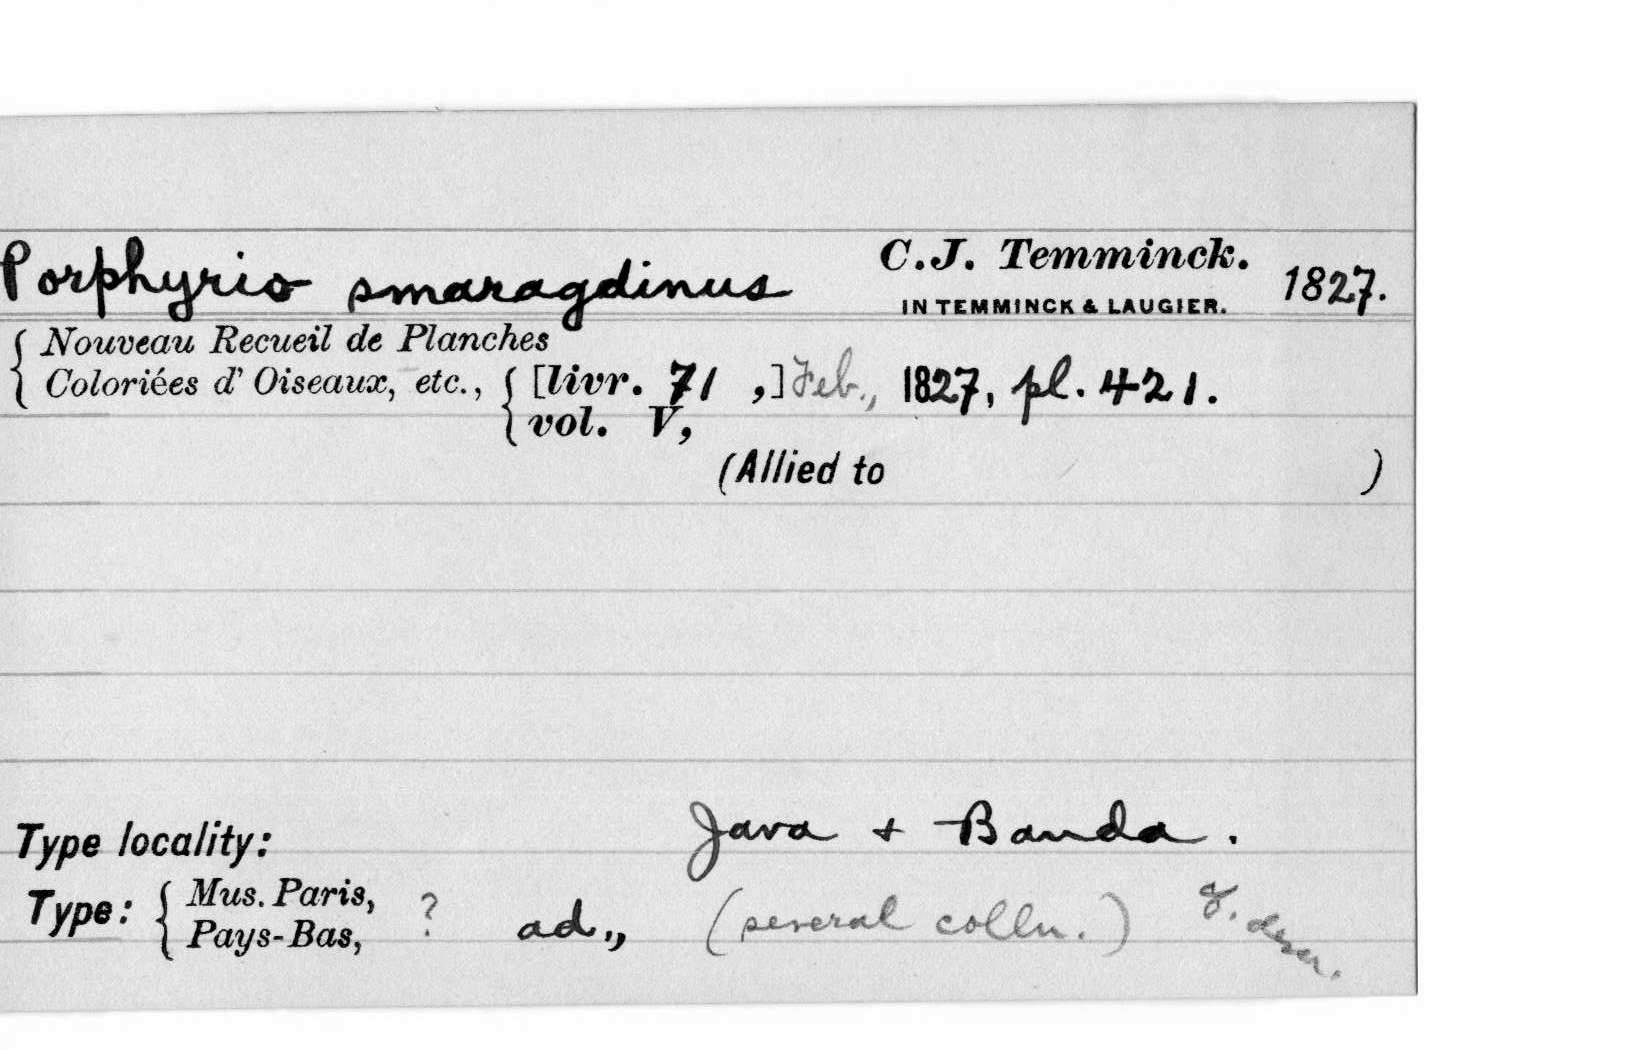 Porphyrio smaragdinus C.J. Temminck. 1827.
IN TEMMINCK & LAUGIER.
Nouveau Recueil de Planches
Coloriées d' Oiseaux, etc., [livr. 71 ,] Feb., 1827, pl. 421.
vol. V,
(Allied to )
Type locality: Java + Banda.
Type: Mus. Paris, ? ad., (several colln.) descr.
Pays-Bas,